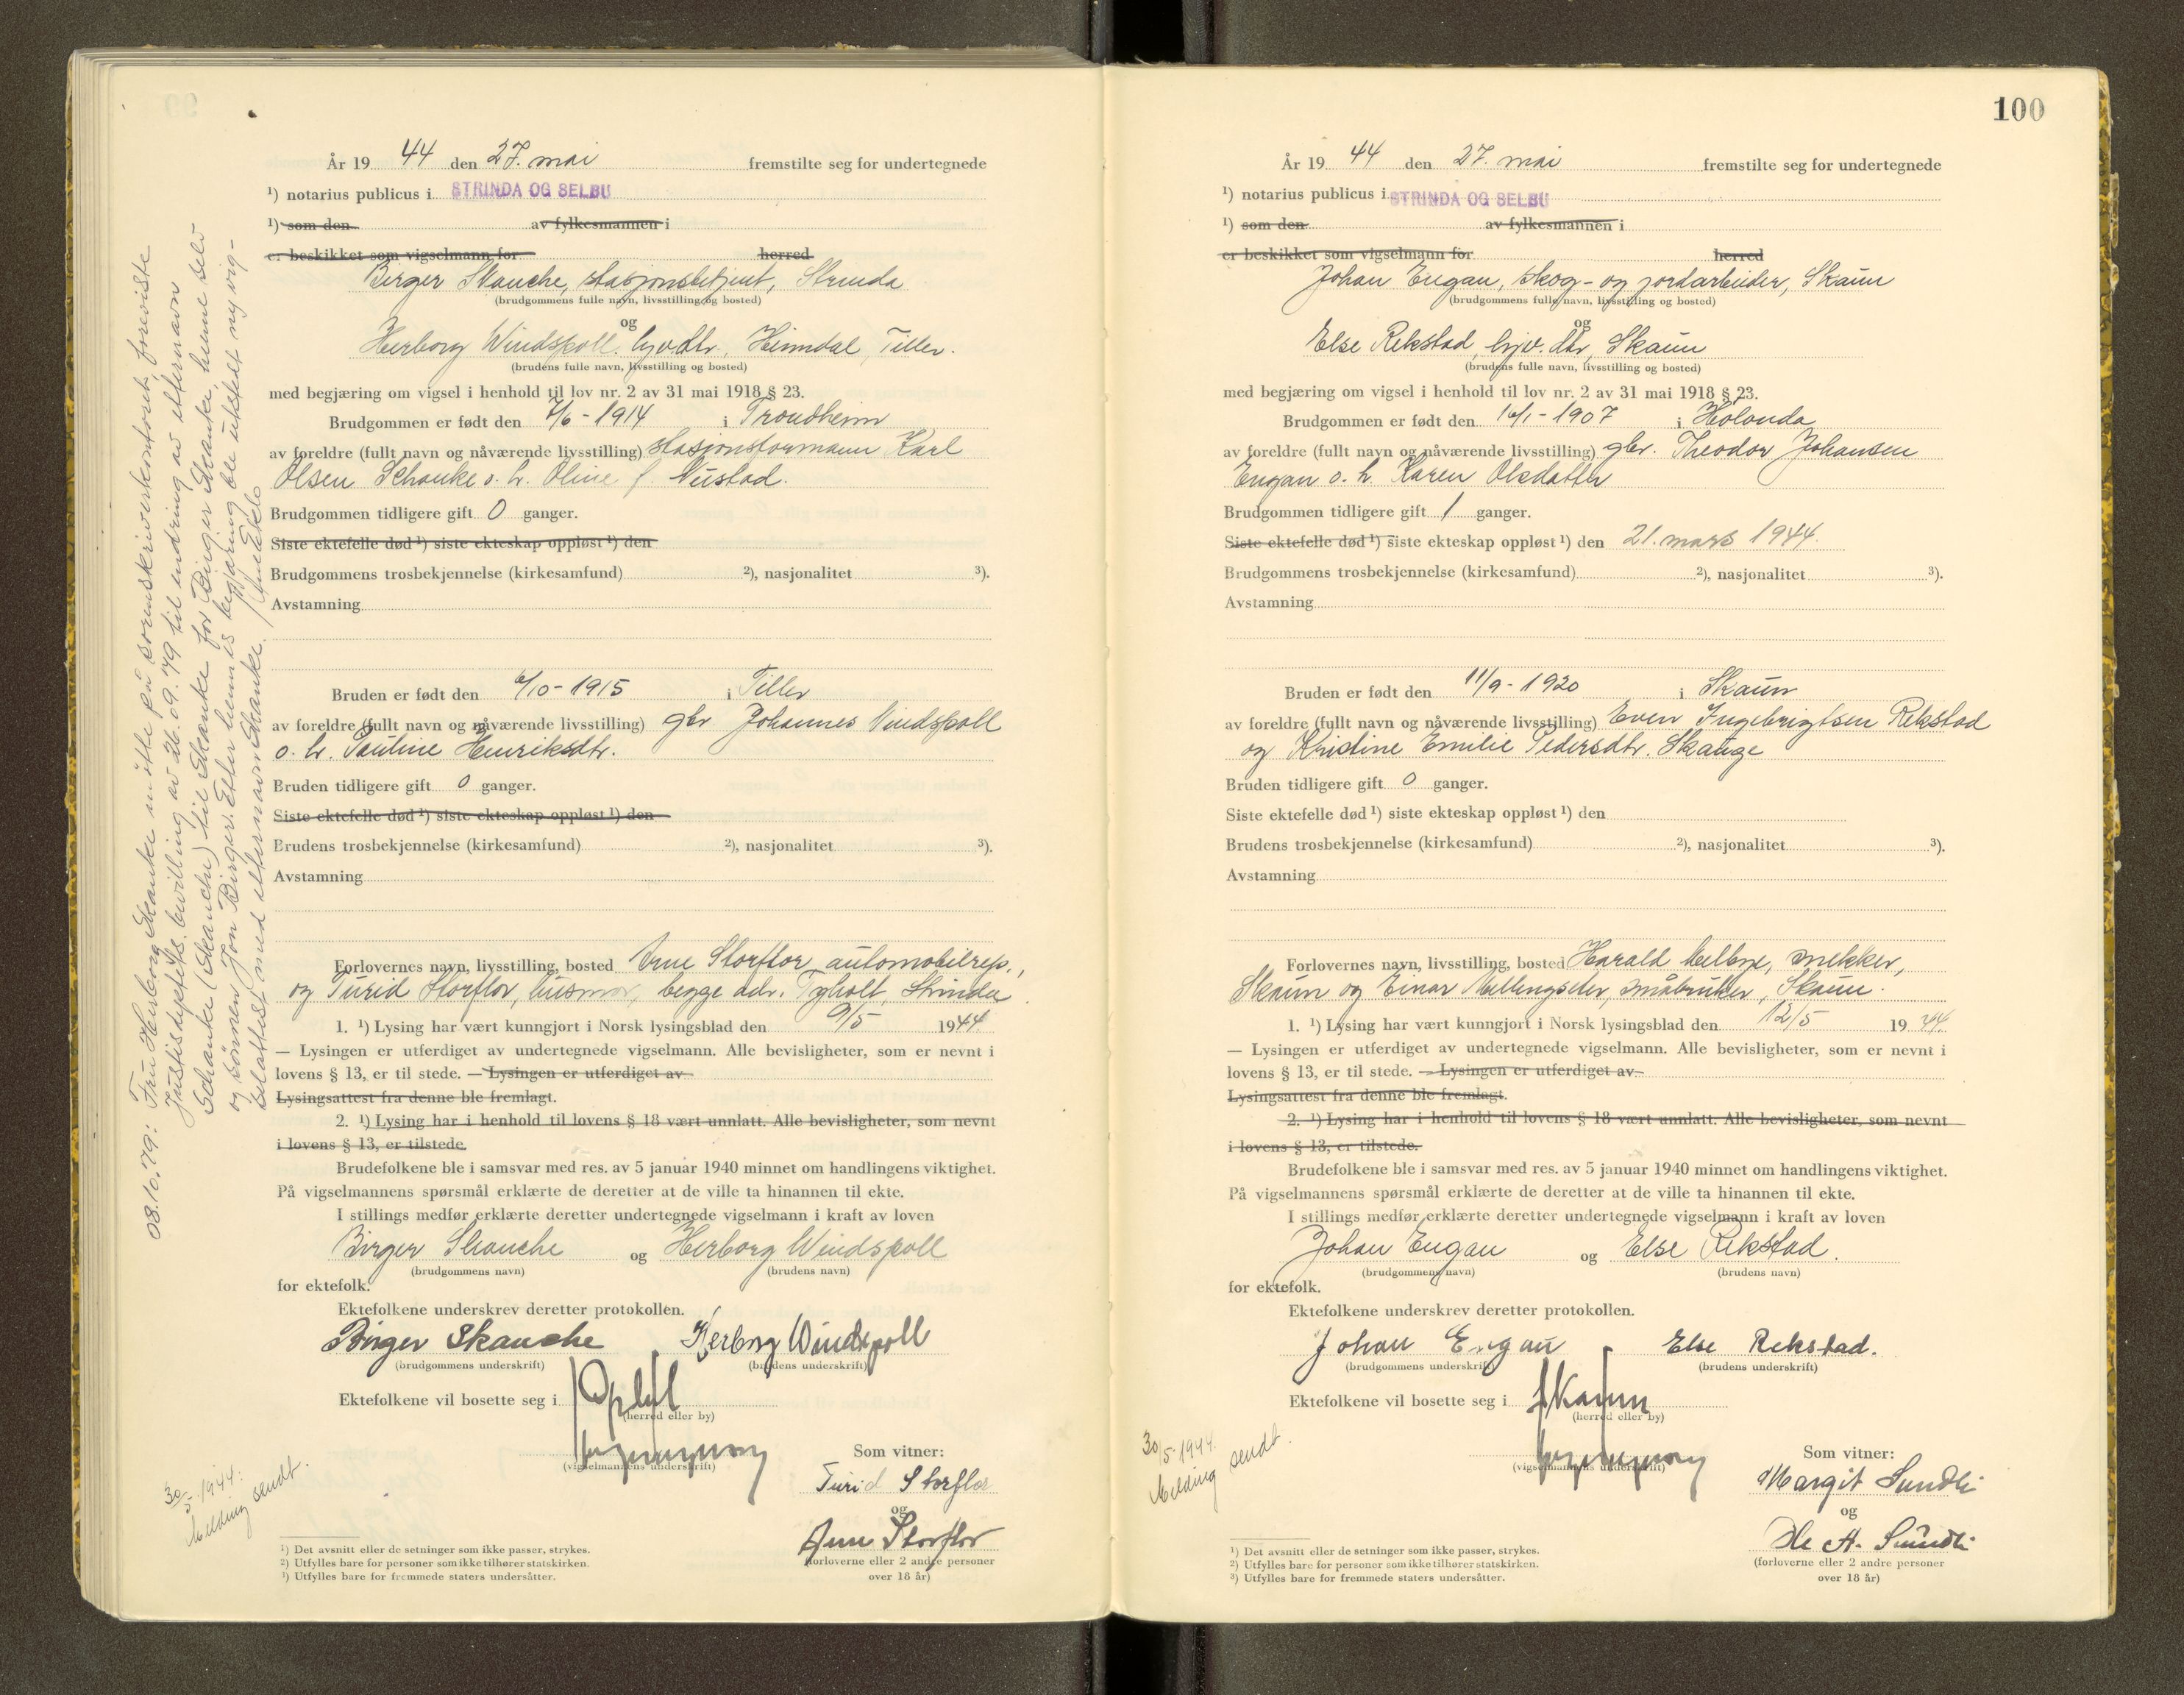 År 1944 den 27. mai fremstilte seg for undertegnede
¹) notarius publicus i STRINDA OG SELBU
¹) som den av fylkesmannen i
er beskikket som vigselmann for herred
Birger Skanche, stasjonsbetjent, Strinda
(brudgommens fulle navn, livsstilling og bosted)
og
Herborg Windspoll, hjv.dtr, Heimdal, Tiller.
(brudens fulle navn, livsstilling og bosted)
med begjæring om vigsel i henhold til lov nr. 2 av 31 mai 1918 § 23.
Brudgommen er født den 7/6 - 1914 i Trondheim
av foreldre (fullt navn og nåværende livsstilling) stasjonsformann Karl
Olsen Schanke o. h. Oline f. Nustad.
Brudgommen tidligere gift 0 ganger.
Siste ektefelle død ¹) siste ekteskap oppløst ¹) den
Brudgommens trosbekjennelse (kirkesamfund) ²), nasjonalitet ³).
Avstamning
Bruden er født den 6/10 - 1915 i Tiller
av foreldre (fullt navn og nåværende livsstilling) gbr Johannes Vindspoll
o. h. Pauline Henriksdtr.
Bruden tidligere gift 0 ganger.
Siste ektefelle død ¹) siste ekteskap oppløst ¹) den
Brudens trosbekjennelse (kirkesamfund) ²), nasjonalitet ³).
Avstamning
Forlovernes navn, livsstilling, bosted Arne Storflor, automobilrep.,
og Turid Storflor, husmor, begge adr. Tyholt, Strinda.
1. ¹) Lysing har vært kunngjort i Norsk lysingsblad den 9/5 1944
— Lysingen er utferdiget av undertegnede vigselmann. Alle bevisligheter, som er nevnt i
lovens § 13, er til stede. — Lysingen er utferdiget av
Lysingsattest fra denne ble fremlagt.
2. ¹) Lysing har i henhold til lovens § 18 vært unnlatt. Alle bevisligheter, som nevnt
i lovens § 13, er tilstede.
Brudefolkene ble i samsvar med res. av 5 januar 1940 minnet om handlingens viktighet.
På vigselmannens spørsmål erklærte de deretter at de ville ta hinannen til ekte.
I stillings medfør erklærte deretter undertegnede vigselmann i kraft av loven
Birger Skanche og Herborg Windspoll
(brudgommens navn) (brudens navn)
for ektefolk.
Ektefolkene underskrev deretter protokollen.
Birger Skanche Herborg Windspoll
(brudgommens underskrift) (brudens underskrift)
Ektefolkene vil bosette seg i
(herred eller by)
(vigselmannens underskrift)
Som vitner:
Turid Storflor
og
Arne Storflor
(forloverne eller 2 andre personer
over 18 år)
30/5 - 1944.
Melding sendt.
¹) Det avsnitt eller de setninger som ikke passer, strykes.
²) Utfylles bare for personer som ikke tilhører statskirken.
³) Utfylles bare for fremmede staters undersåtter.
08.10.79: Fru Herborg Skanke møtte på sorenskriverkontoret, foreviste
Justisdeptets. bevilling av 26.09.79 til endring av etternavn
Schanke (Skanche) til Skanke for Birger Skanke, henne selv
og sønnen Jon Birger. Etter hennes begjæring ble utstedt ny vig-
selattest med etternavn Skanke.
100
År 1944 den 27. mai fremstilte seg for undertegnede
¹) notarius publicus i STRINDA OG SELBU
¹) som den av fylkesmannen i
er beskikket som vigselmann for herred
Johan Engan, skog- og jordarbeider, Skaun
(brudgommens fulle navn, livsstilling og bosted)
og
Else Rekstad, hjv. dtr, Skaun
(brudens fulle navn, livsstilling og bosted)
med begjæring om vigsel i henhold til lov nr. 2 av 31 mai 1918 § 23.
Brudgommen er født den 16/1 - 1907 i Hølonda
av foreldre (fullt navn og nåværende livsstilling) gbr. Theodor Johansen
Engan o. h. Karen Olsdatter
Brudgommen tidligere gift 1 ganger.
Siste ektefelle død ¹) siste ekteskap oppløst ¹) den 21. mars 1944.
Brudgommens trosbekjennelse (kirkesamfund) ²), nasjonalitet ³).
Avstamning
Bruden er født den 11/9 - 1920 i Skaun
av foreldre (fullt navn og nåværende livsstilling) Even Ingebrigtsen Rekstad
og Kristine Emilie Pedersdtr. Skauge
Bruden tidligere gift 0 ganger.
Siste ektefelle død ¹) siste ekteskap oppløst ¹) den
Brudens trosbekjennelse (kirkesamfund) ²), nasjonalitet ³).
Avstamning
Forlovernes navn, livsstilling, bosted Harald Melbye, snekker,
Skaun og Einar Mellingseter, småbruker, Skaun.
1. ¹) Lysing har vært kunngjort i Norsk lysingsblad den 12/5 1944
— Lysingen er utferdiget av undertegnede vigselmann. Alle bevisligheter, som er nevnt i
lovens § 13, er til stede. — Lysingen er utferdiget av
Lysingsattest fra denne ble fremlagt.
2. ¹) Lysing har i henhold til lovens § 18 vært unnlatt. Alle bevisligheter, som nevnt
i lovens § 13, er tilstede.
Brudefolkene ble i samsvar med res. av 5 januar 1940 minnet om handlingens viktighet.
På vigselmannens spørsmål erklærte de deretter at de ville ta hinannen til ekte.
I stillings medfør erklærte deretter undertegnede vigselmann i kraft av loven
Johan Engan og Else Rekstad.
(brudgommens navn) (brudens navn)
for ektefolk.
Ektefolkene underskrev deretter protokollen.
Johan Engan Else Rekstad.
(brudgommens underskrift) (brudens underskrift)
Ektefolkene vil bosette seg i Skaun
(herred eller by)
(vigselmannens underskrift)
Som vitner:
Margit Sundli
og
Ole A. Sundli
(forloverne eller 2 andre personer
over 18 år)
30/5 - 1944.
Melding sendt.
¹) Det avsnitt eller de setninger som ikke passer, strykes.
²) Utfylles bare for personer som ikke tilhører statskirken.
³) Utfylles bare for fremmede staters undersåtter.